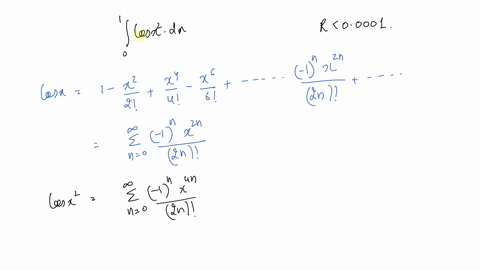 ∫₀¹ cos x² · dx    R < 0.0001.
cos x = 1 - x²/2! + x⁴/4! - x⁶/6! + ----- (-1)ⁿ x²ⁿ/(2n)! + ----
= ∑ₙ₌₀^∞ (-1)ⁿ x²ⁿ/(2n)!
cos x² = ∑ₙ₌₀^∞ (-1)ⁿ x⁴ⁿ/(2n)!